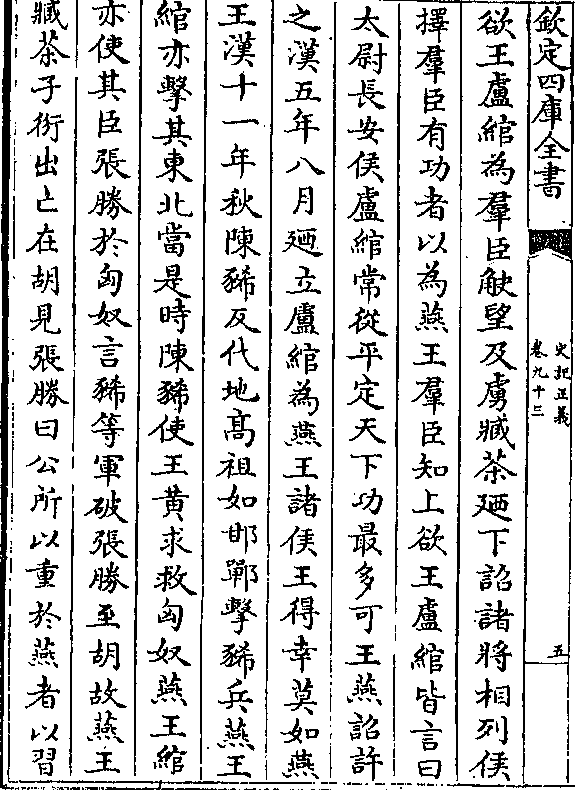 欽定四庫全書
史記正義
卷九十三
五
欲王盧綰為羣臣觖望及虜臧荼廼下詔諸將相列侯
擇羣臣有功者以為燕王羣臣知上欲王盧綰皆言曰
太尉長安侯盧綰常從平定天下功最多可王燕詔許
之漢五年八月廼立盧綰為燕王諸侯王得幸莫如燕
王漢十一年秋陳豨反代地髙祖如邯鄲擊豨兵燕王
綰亦擊其東北當是時陳豨使王黄求救匈奴燕王綰
亦使其臣張勝於匈奴言豨等軍破張勝至胡故燕王
臧荼子衍出亡在胡見張勝曰公所以重於燕者以習